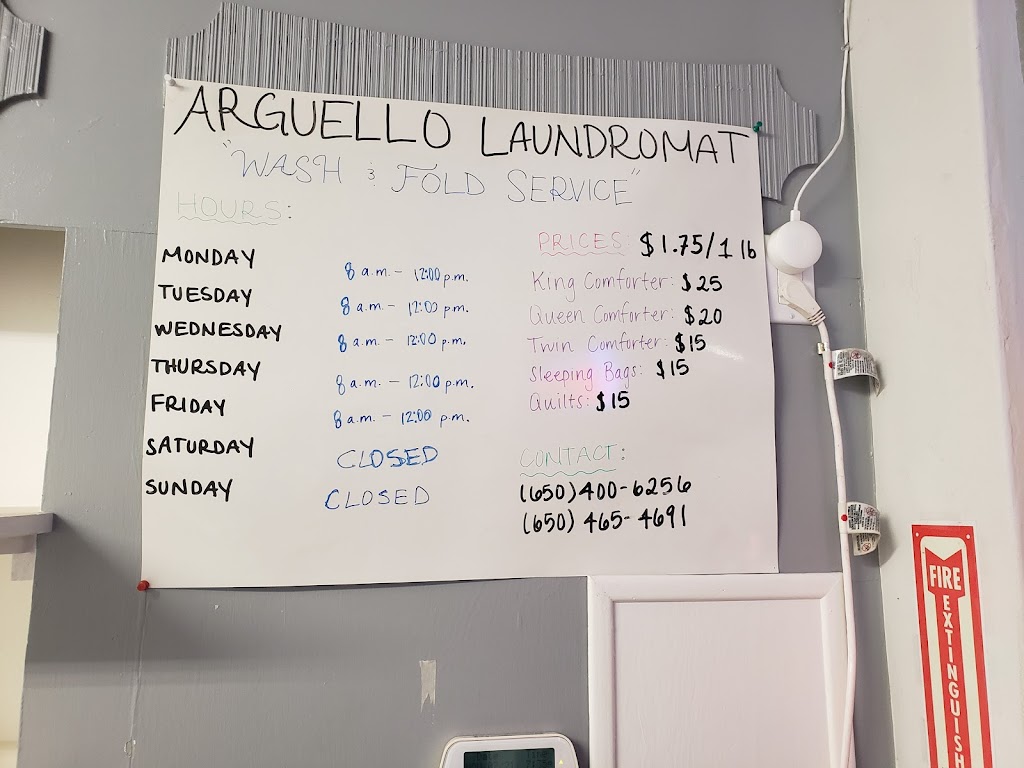 ARGUELLO LAUNDROMAT
"WASH & FOLD SERVICE"
HOURS:
MONDAY 8 a.m. - 12:00 p.m.
TUESDAY 8 a.m. - 12:00 p.m.
WEDNESDAY 8 a.m. - 12:00 p.m.
THURSDAY 8 a.m. - 12:00 p.m.
FRIDAY 8 a.m. - 12:00 p.m.
SATURDAY CLOSED
SUNDAY CLOSED
PRICES $1.75/1 lb
King Comforter: $25
Queen Comforter: $20
Twin Comforter: $15
Sleeping Bags: $15
Quilts: $15
CONTACT:
(650)400-6256
(650) 465-4691
FIRE
EXTINGUISH